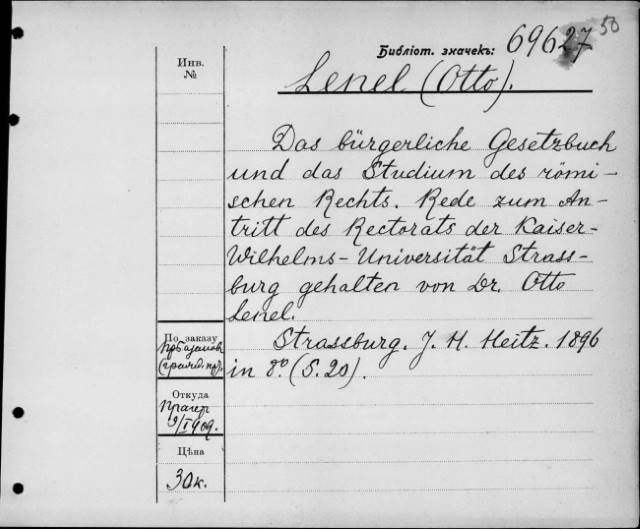 50
Библіот. значекъ: 69627
Инв.
№
Lenel (Otto).
Das bürgerliche Gesetzbuch
und das Studium des römi-
schen Rechts. Rede zum An-
tritt des Rectorats der Kaiser-
Wilhelms-Universität Strass-
burg gehalten von Dr. Otto
Lenel.
Strassburg. J. H. Heitz. 1896
in 8º. (S. 20).
По заказу
Откуда
Прагер
9/I 909.
Цѣна
30к.